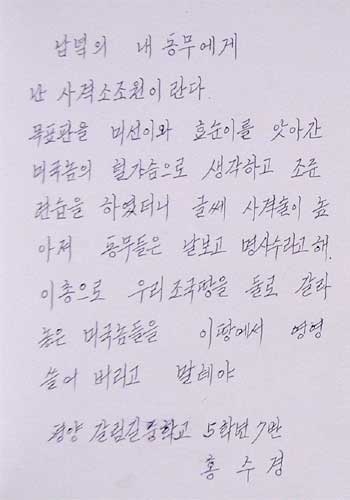 남녘의 내 동무에게
난 사격소조원이란다.
목표판을 미선이와 효순이를 앗아간
미국놈의 털가슴으로 생각하고 조준
련습을 하였더니 글쎄 사격술이 높
아져 동무들은 날보고 명사수라고 해.
이총으로 우리 조국땅을 둘로 갈라
놓은 미국놈들을 이땅에서 영영
쓸어 버리고 말테야
평양 갈림길중학교 5학년 7반
홍 수 경